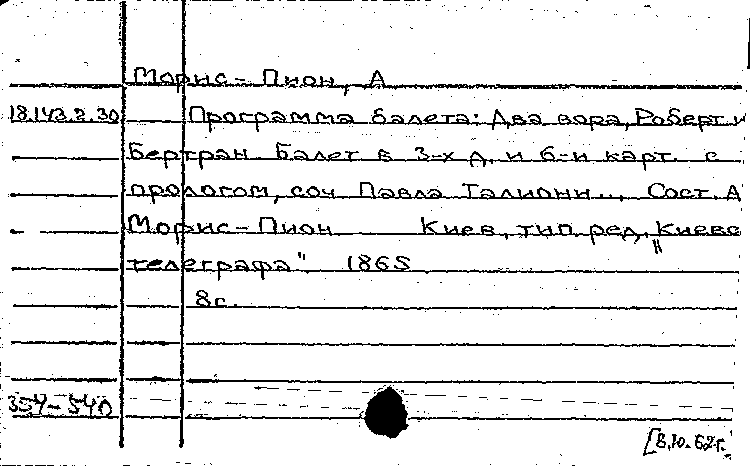 Морис-Пион, А
18.143.2.30 Программа балета: Два вора, Роберт и
Бертран. Балет в 3-х д. и 6-и карт. с
прологом, соч Павла Талиони.., Сост. А
Морис-Пион Киев, тип. ред. „Киевс
телеграфа" 1865
8с.
354-540
[8.10.62г.